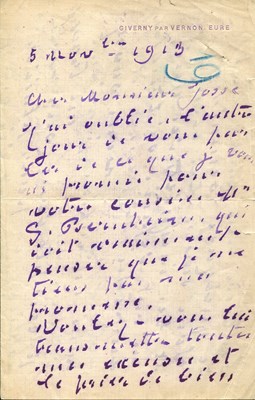 GIVERNY PAR VERNON, EURE
5 Nov bre 1913
Cher Monsieur Josse
j'ai oublié l'autre
jour de vous par
ler de ce que j'
promis pour
votre cousin Mr
G. qui
doit
penser que je ne
tiens pas ma
promesse.
Voulez-vous lui
transmettre toutes
mes excuses et
le prier de bien